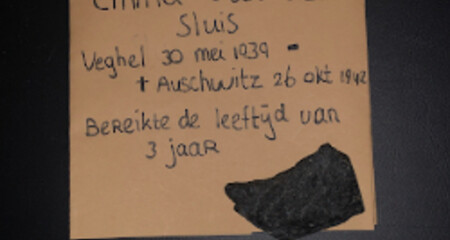 Sluis
Veghel 30 mei 1939 -
+ Auschwitz 26 okt 1942
Bereikte de leeftijd van
3 jaar